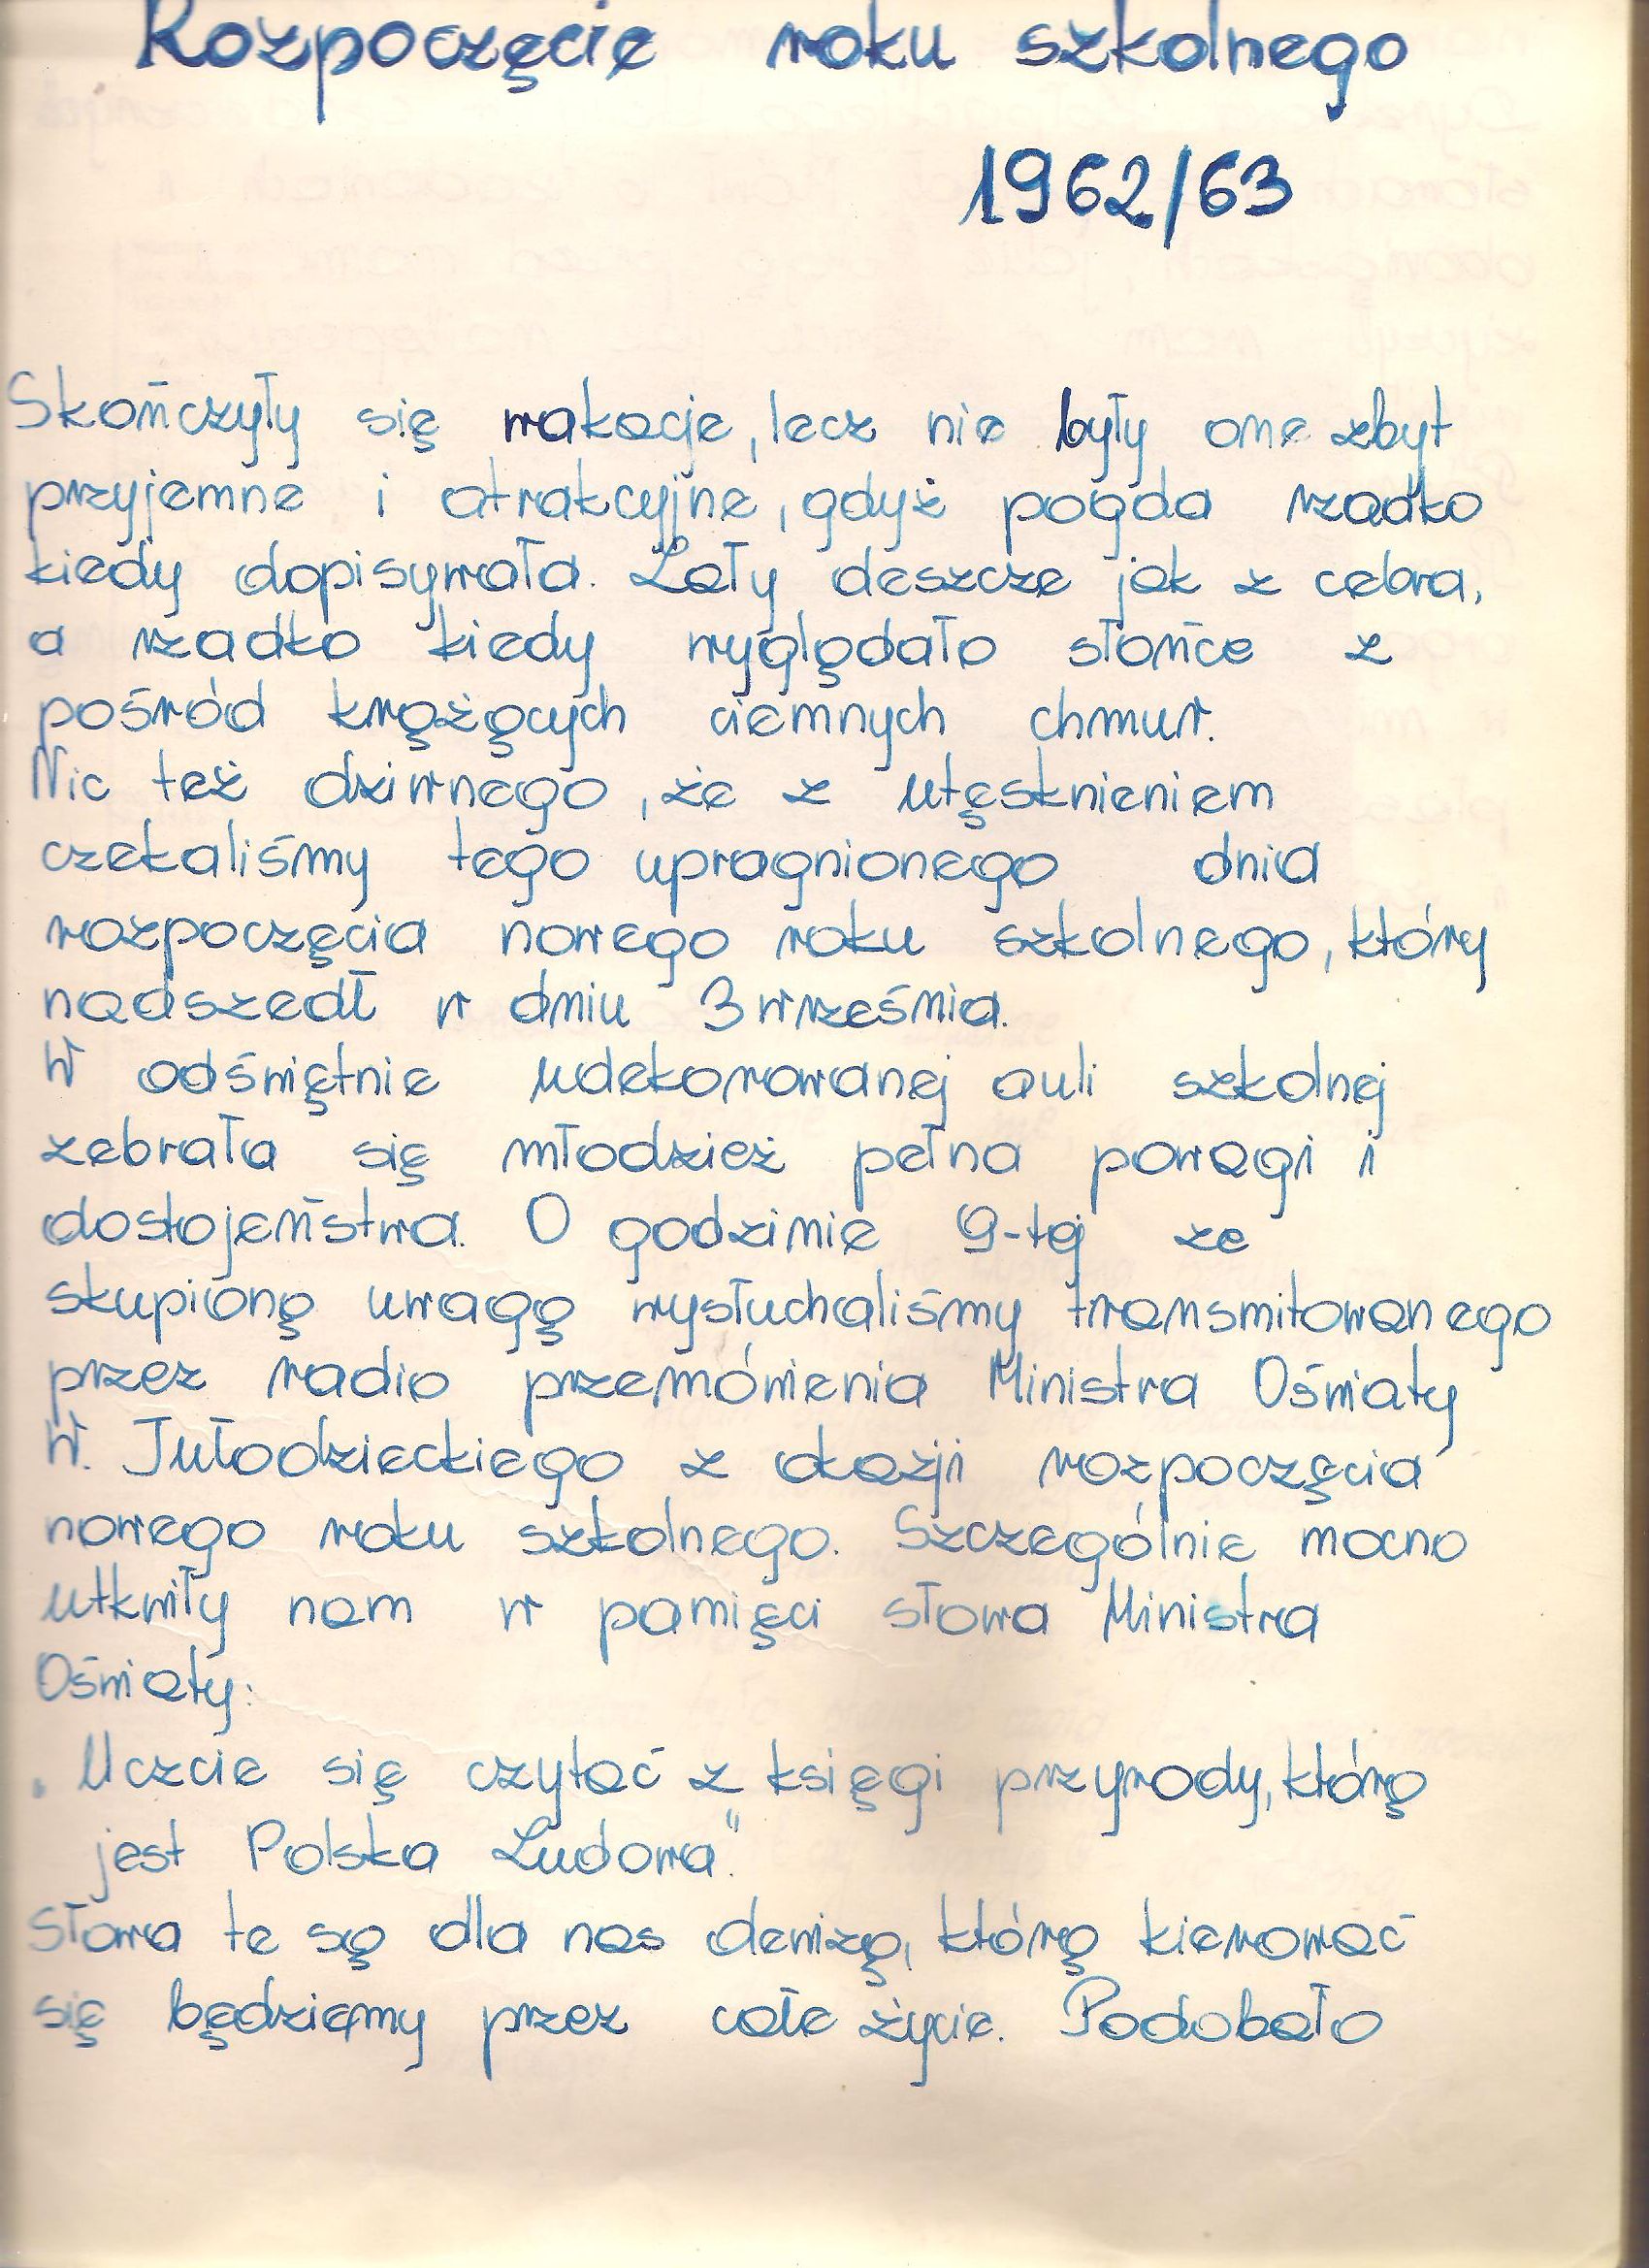 Rozpoczęcie roku szkolnego
1962/63
Skończyły się wakacje, lecz nie były one zbyt
przyjemne i atrakcyjne, gdyż pogoda rzadko
kiedy dopisywała. Lały deszcze jak z cebra,
a rzadko kiedy wyglądało słońce z
pośród krążących ciemnych chmur.
Nic też dziwnego, że z utęsknieniem
czekaliśmy tego upragnionego dnia
rozpoczęcia nowego roku szkolnego, który
nadszedł w dniu 3 września.
W odświętnie udekorowanej auli szkolnej
zebrała się młodzież pełna powagi i
dostojeństwa. O godzinie 9-tej ze
skupioną uwagą wysłuchaliśmy transmitowanego
przez radio przemówienia Ministra Oświaty
W. Tułodzieckiego z okazji rozpoczęcia
nowego roku szkolnego. Szczególnie mocno
utkwiły nam w pamięci słowa Ministra
Oświaty:
„Uczcie się czytać z księgi przyrody, którą
jest Polska Ludowa".
Słowa te są dla nas dewizą, którą kierować
się będziemy przez całe życie. Podobało